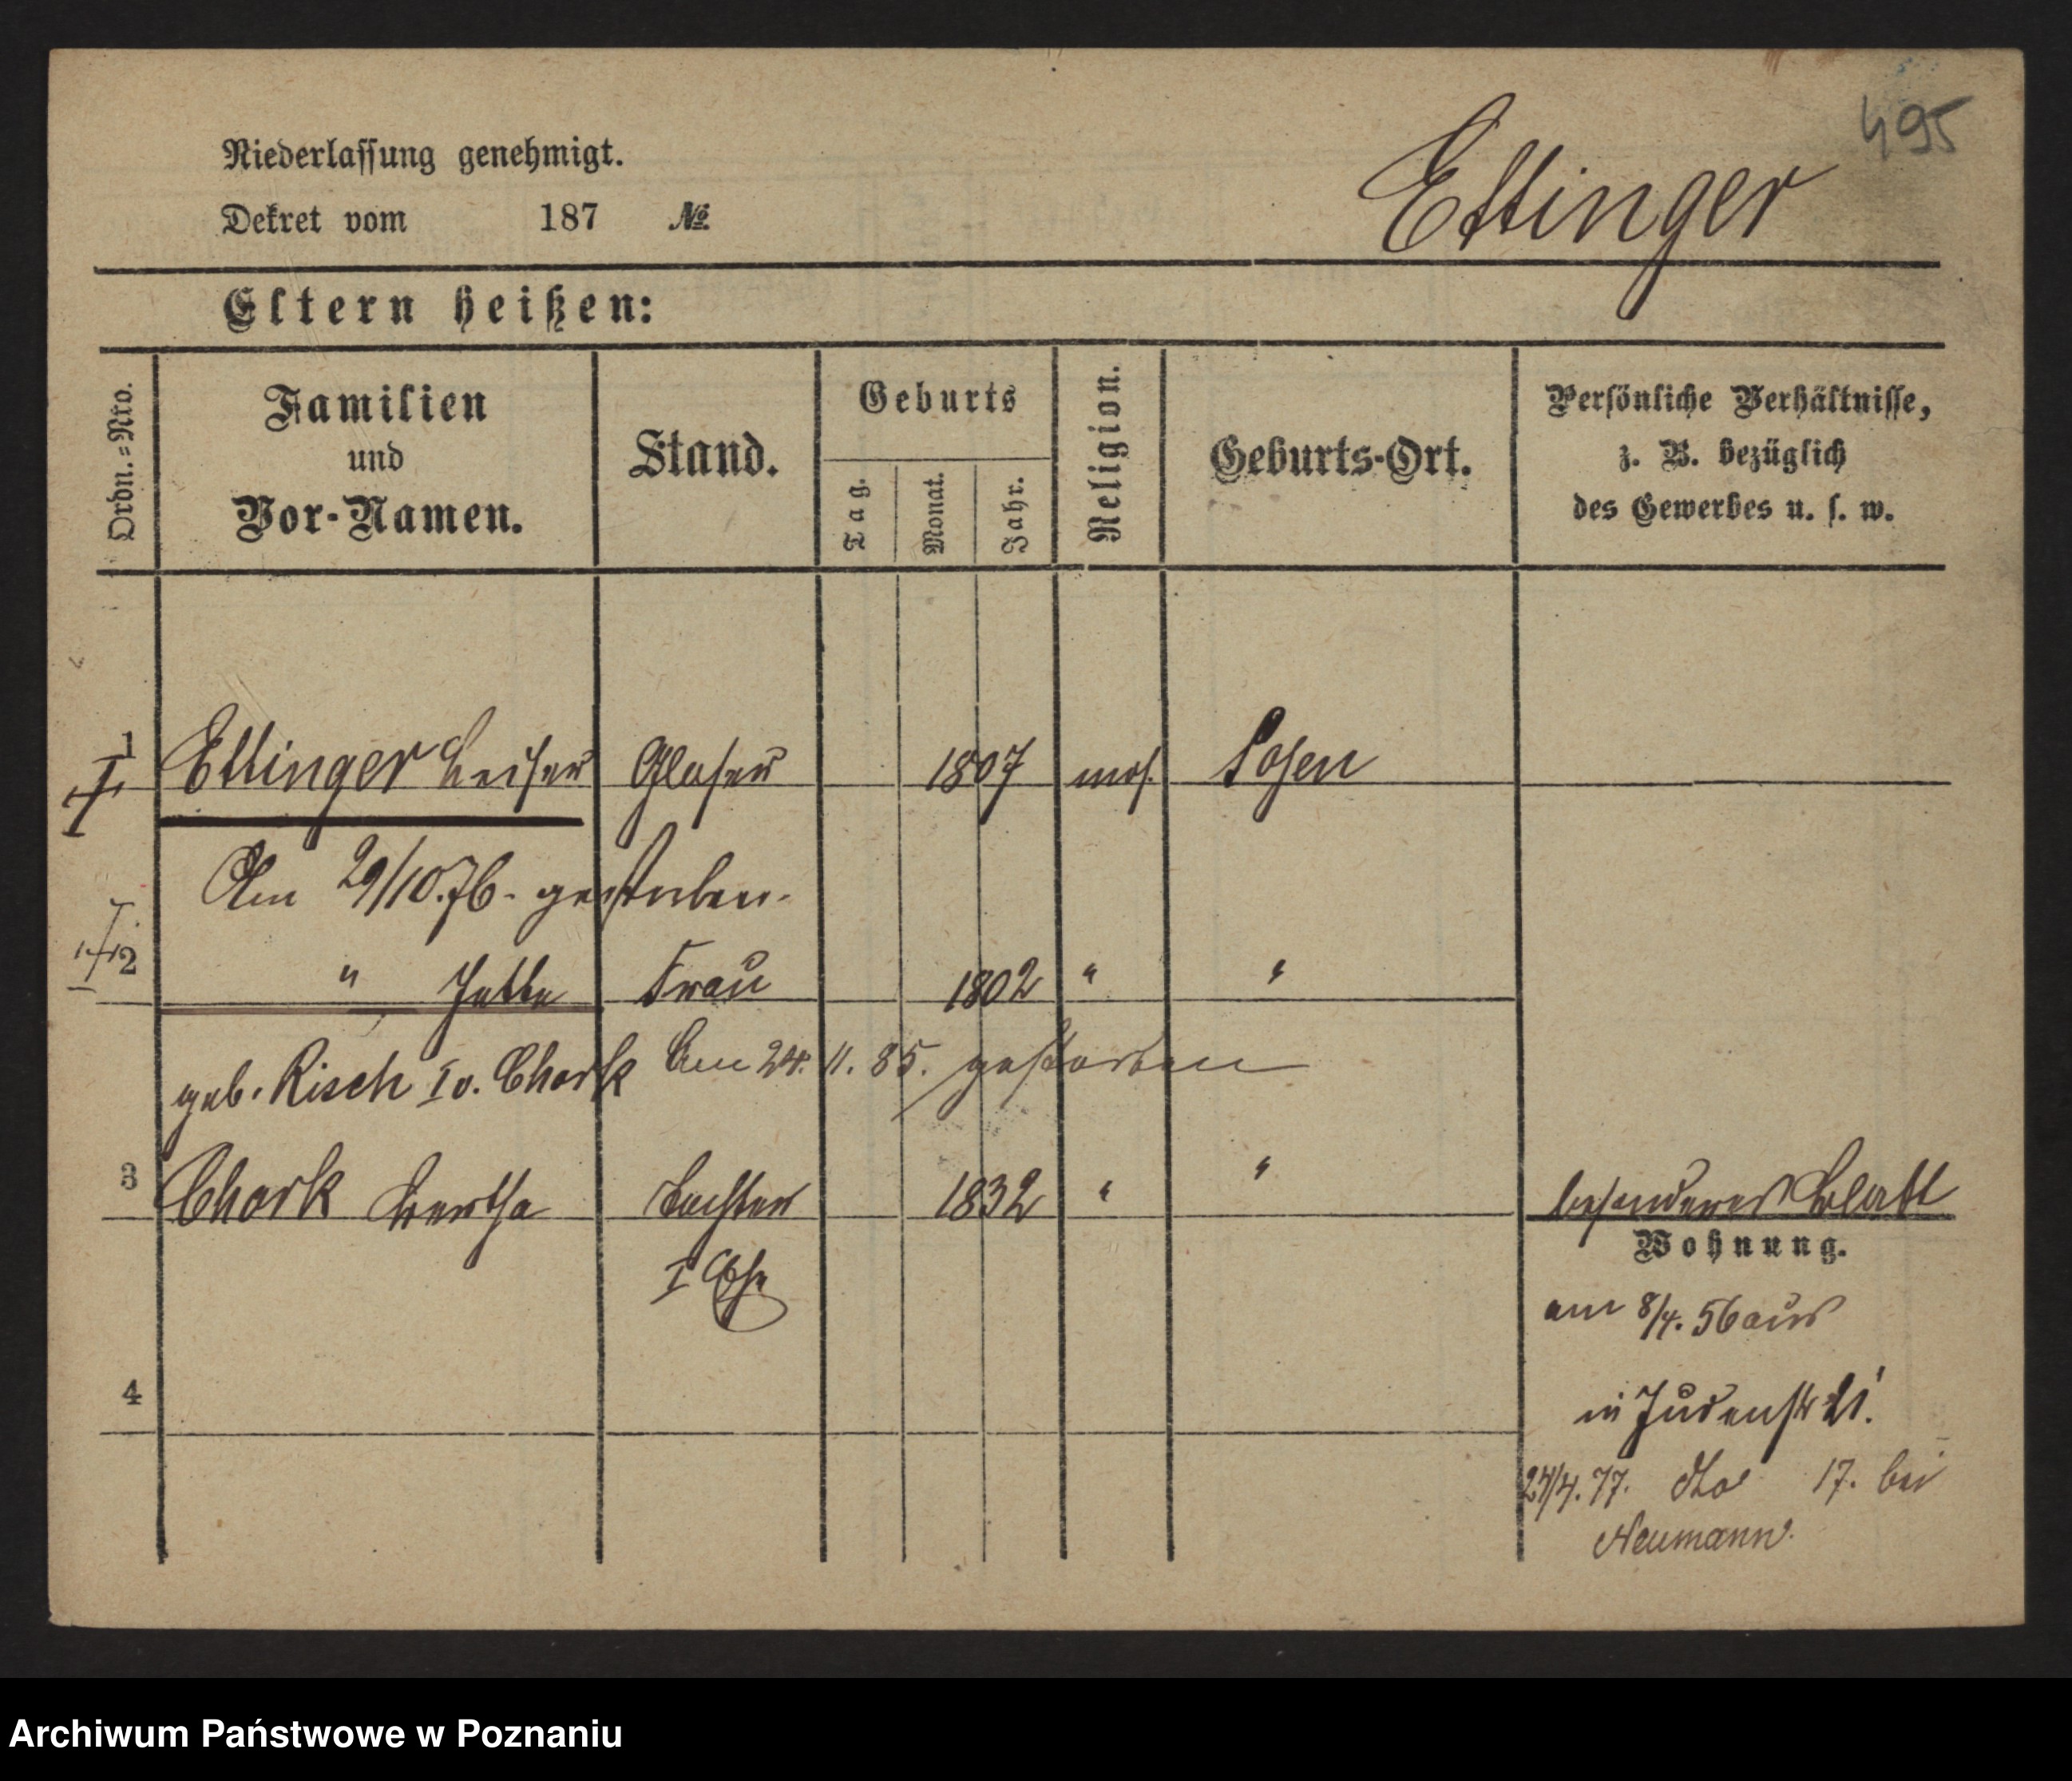 495
Ettinger
Niederlassung genehmigt.
Dekret vom 187 №
Eltern heißen:
Ordn.=Nro.
Familien
und
Vor-Namen.
Stand.
Geburts
Tag.
Monat.
Jahr.
Religion.
Geburts-Ort.
Persönliche Verhältnisse,
z. B. bezüglich
des Gewerbes u. s. w.
1 Ettinger Leiser Glaser 1807 mos. Posen
Am 29/10.76. gestorben.
2 " Jette Frau 1802 " "
geb. Risch I v. Chork Am 24. 11. 85. gestorben
3 Chork Bertha Tochter 1832 " " besonderes Blatt
I Ehe
Wohnung.
am 8/4. 56 aus
4
in Judenstr 21.
24/4. 77. dto 17. bei
Neumann.
Archiwum Państwowe w Poznaniu